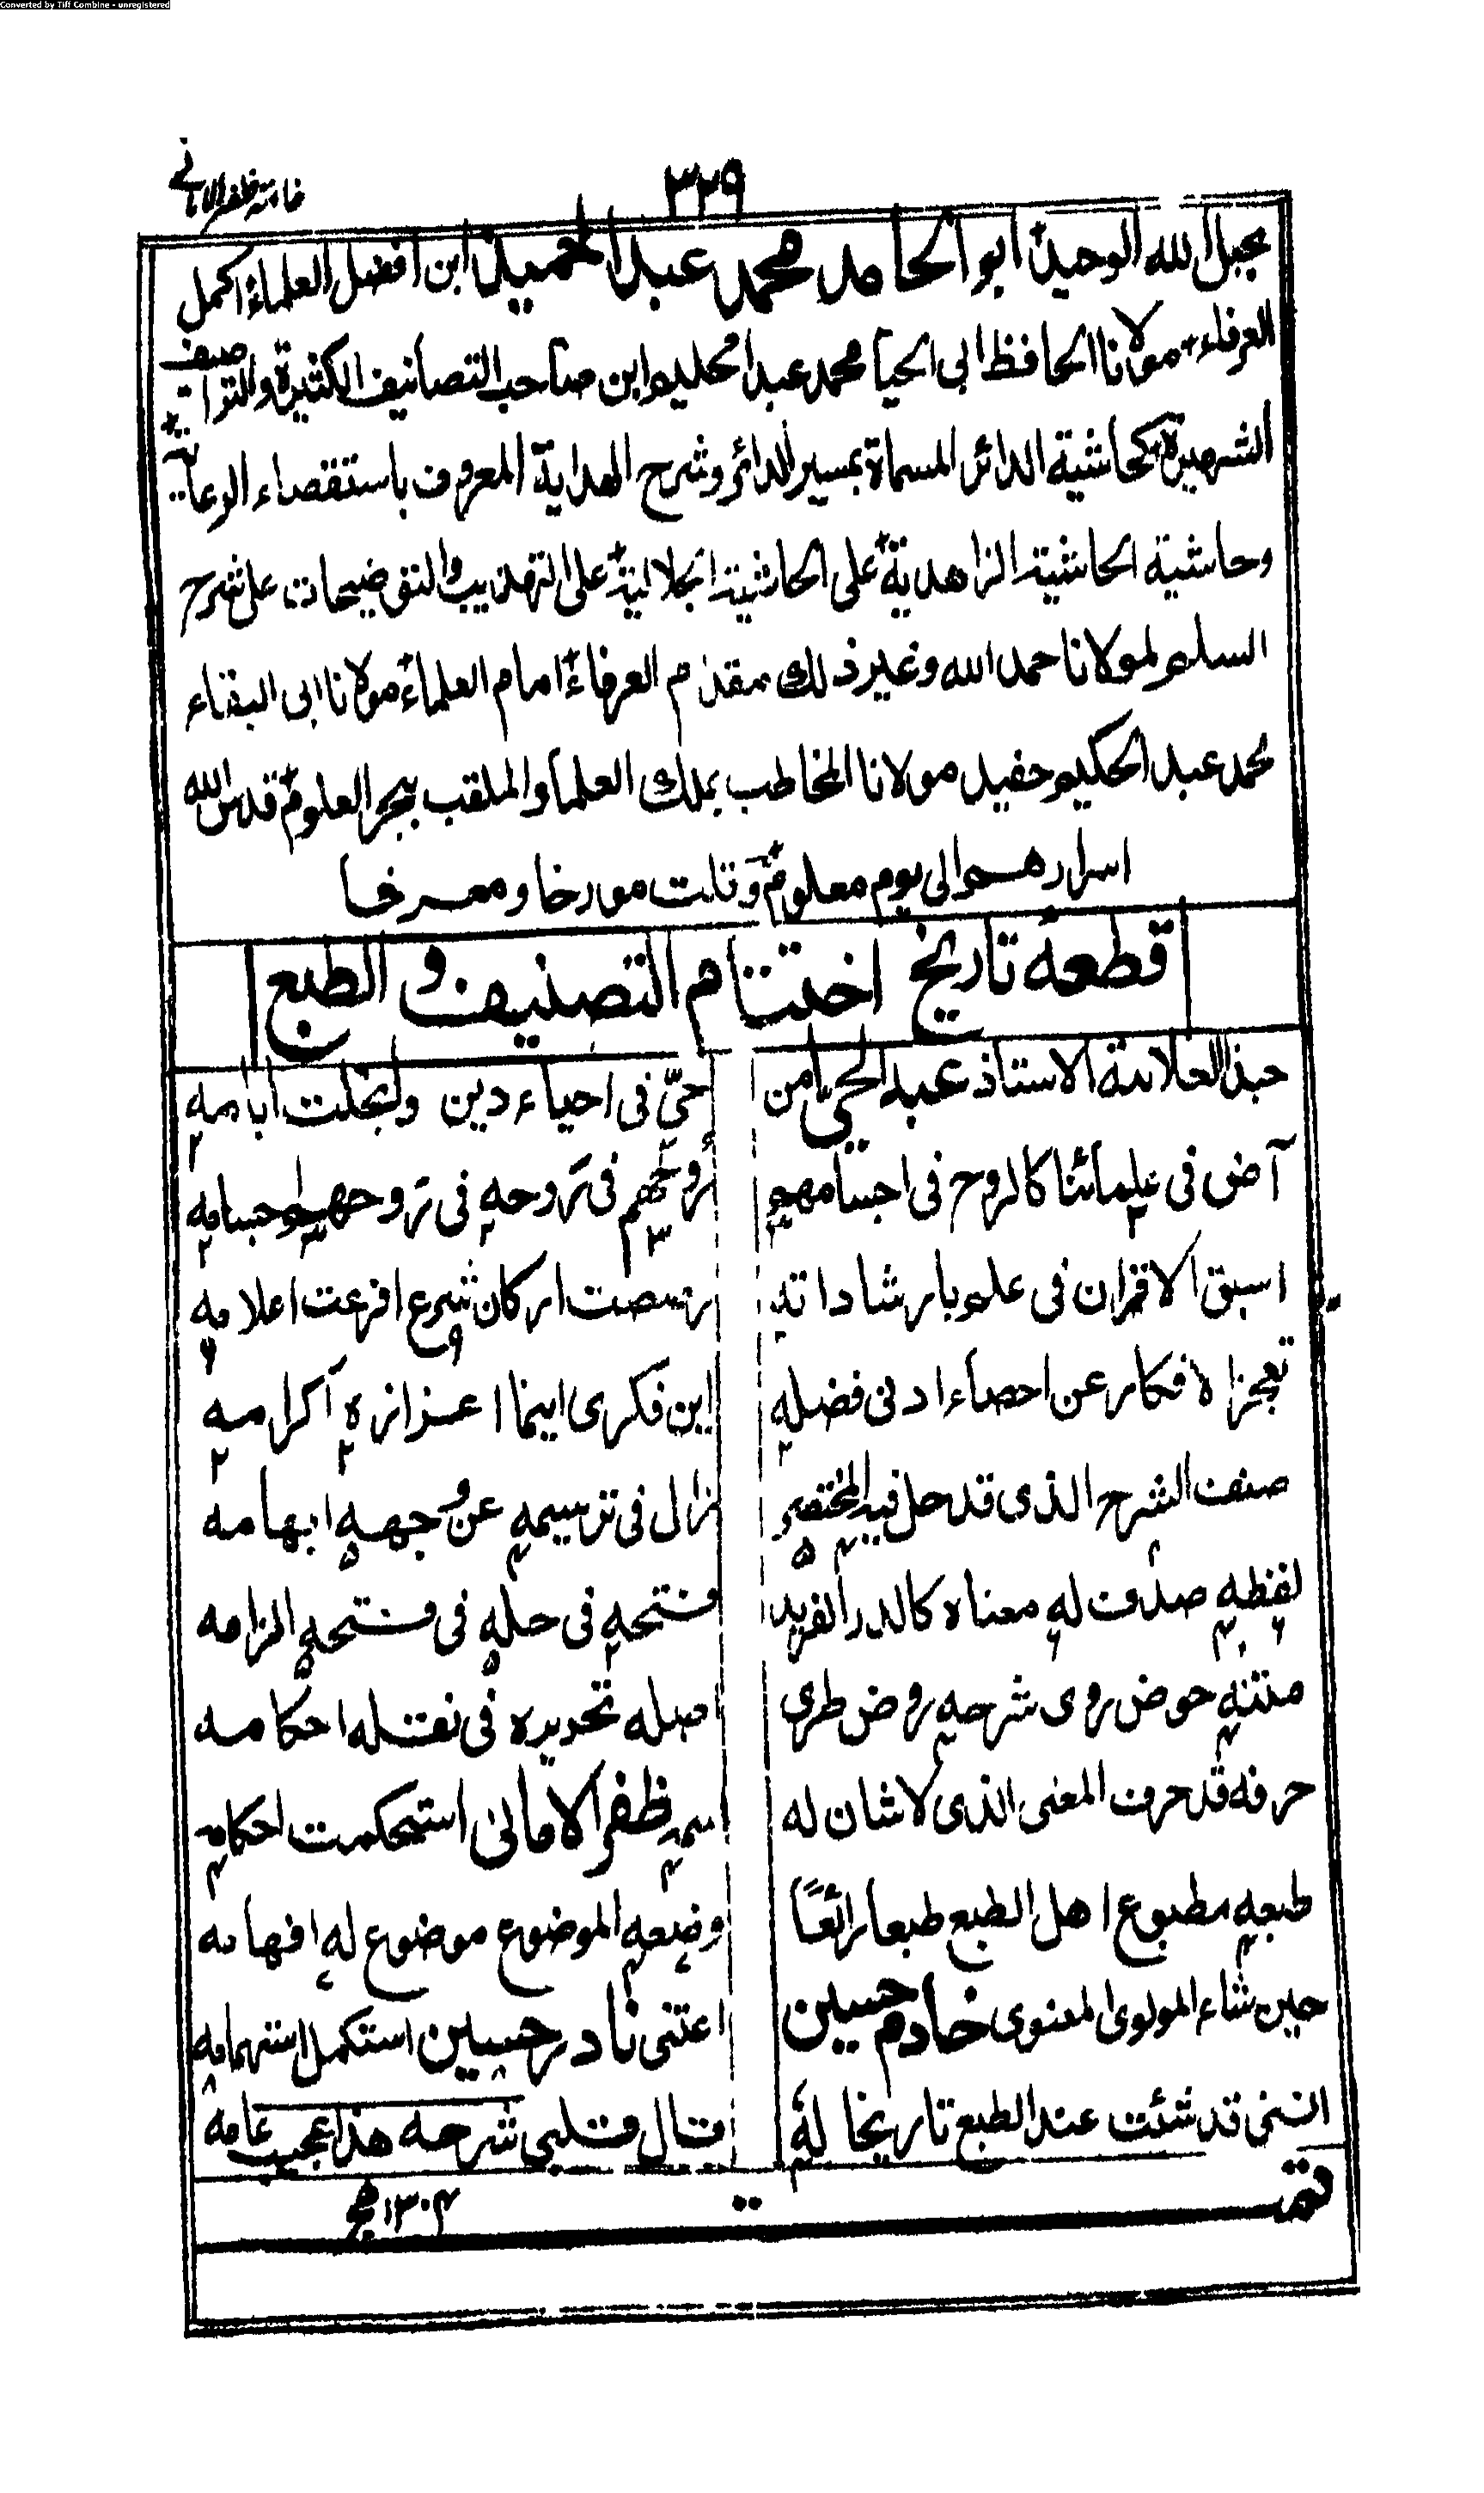 Converted by Tiff Combine - unregistered
٣٢٩
بحبل الله الوحيد ابو الحامد محمد عبد الحميد ابن افضل العلماء اكمل
العرفاء مولانا الحافظ ابى الحيا محمد عبد الحليم ابن صاحب التصانيف الكثيرة والتواصيف
الشهيرة كحاشية الدائر المسماة بمسير الدائر وشرح الهداية المعروف باستقصاء الوعاية
وحاشية الحاشية الزاهدية على الحاشية الجلالية على التهذيب والتوضيحات على شرح
السلم لمولانا حمد الله وغير ذلك مقدم العرفاء امام العلماء مولانا ابى البقاء
محمد عبد الحكيم حفيد مولانا المخاطب بملك العلماء والملقب ببحر العلوم قدس الله
اسرارهم الى يوم معلوم وقلت مورخا ومعرخا
قطعه تاريخ اختتام التصنيف و الطبع
حبذا العلامة الاستاذ عبد الحي يا من
حيّ فى احياء دين ولجلت ايامه
آض فى علمائنا كالروح فى اجسامهم
روحهم فى تروحه فى تروحهم اجسامه
اسبق الاقران فى علم بارشاداته
رصصت اركان شرع افرعت اعلامه
تعجز الافكار عن احصاء ادنى فضله
اين فكرى اينما اعزازه اكرامه
صنف الشرح الذى قد حل فيه المختصر
زال فى ترسيمه عن وجهه ابهامه
لفظه صدف له معناه كالدر الفريد
فتحه فى حله فى فتحه الزامه
متنه حوض روى شرحه روض طرى
تحديده فى نقله احكامه
حرفه قد حرف المعنى الذى لا شان له
اسمه ظفر الامانى استحكمت احكامه
طبعه مطبوع اهل الطبع طبعا رائعًا
وضعه الموضوع موضوع له افهامه
حين شاء المولوى المعنوى خادم حسين
اعتنى نادر حسين استكمل استهمامه
اننى قد شئت عند الطبع تاريخا له
قال قلبى شرحه هذا عجيب عامه
١٣٠٤